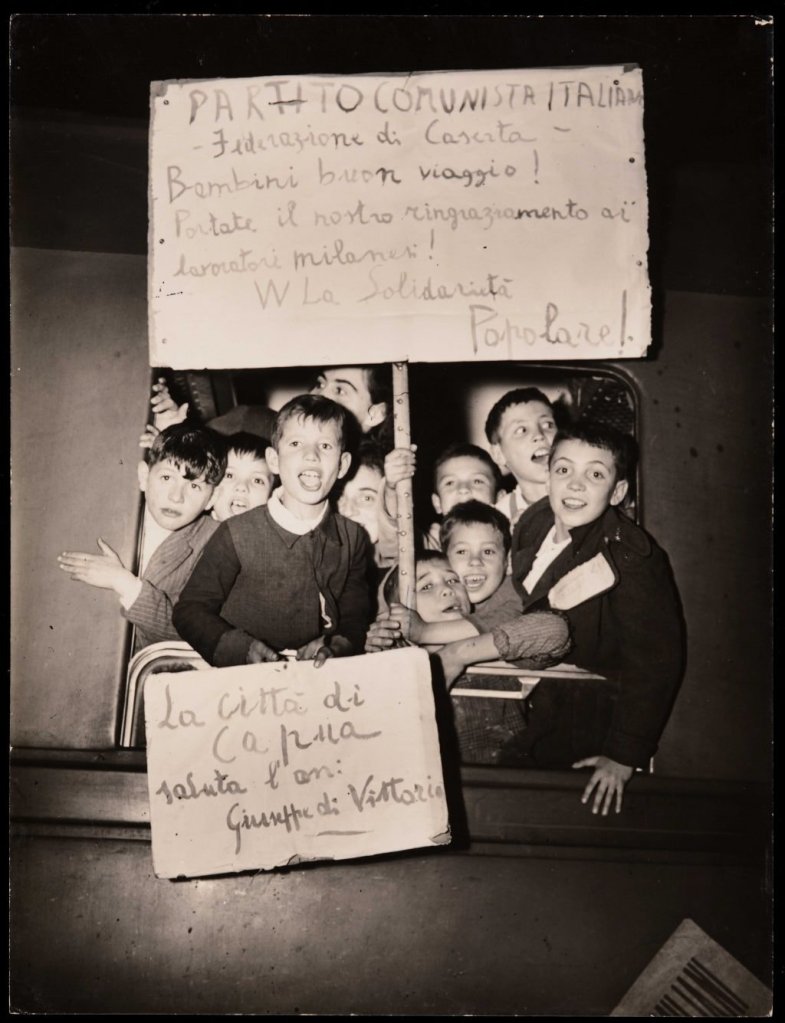 PARTITO COMUNISTA ITALIANO
- Federazione di Caserta -
Bambini buon viaggio!
Portate il nostro ringraziamento ai
lavoratori milanesi!
W La Solidarietà
Popolare!
La città di
Capua
saluta l'on:
Giuseppe di Vittorio